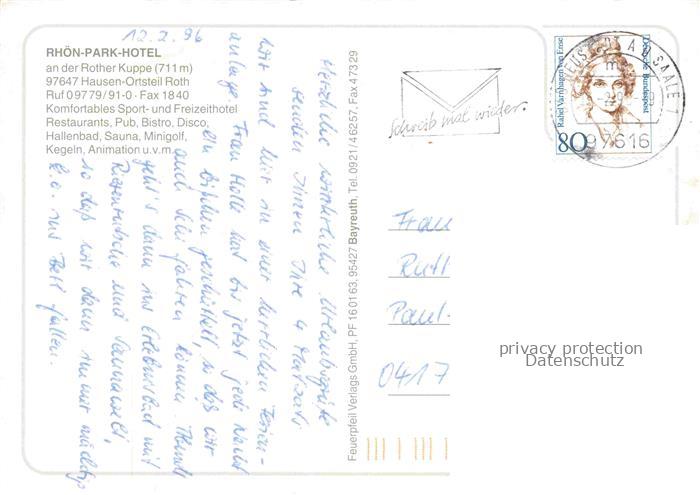 12.2.96
RHÖN-PARK-HOTEL
an der Rother Kuppe (711 m)
97647 Hausen-Ortsteil Roth
Ruf 0 97 79 / 91-0 · Fax 18 40
Komfortables Sport- und Freizeithotel
Restaurants, Pub, Bistro, Disco,
Hallenbad, Sauna, Minigolf,
Kegeln, Animation u.v.m.
Herzliche winterliche Urlaubsgrüße
senden Ihnen Ihre 4
Wir sind hier in einer herrlichen Ferien-
anlage. Frau Holle hat bis jetzt jede Nacht
ein bißchen geschüttelt, so daß wir
auch Ski fahren können. Abends
geht's dann ins Erlebnisbad mit
Riesenrutsche und Saunawelt,
so daß wir dann immer müde
k.o. ins Bett fallen.
Feuerpfeil Verlags GmbH, PF 16 01 63, 95427 Bayreuth, Tel. 0921/46257, Fax 47329
Schreib mal wieder.
Deutsche Bundespost
Rahel Varnhagen von Ense
80
NEUSTADT A D SAALE 1
m
97616
Frau
Ruth
Paul-
0417
privacy protection
Datenschutz